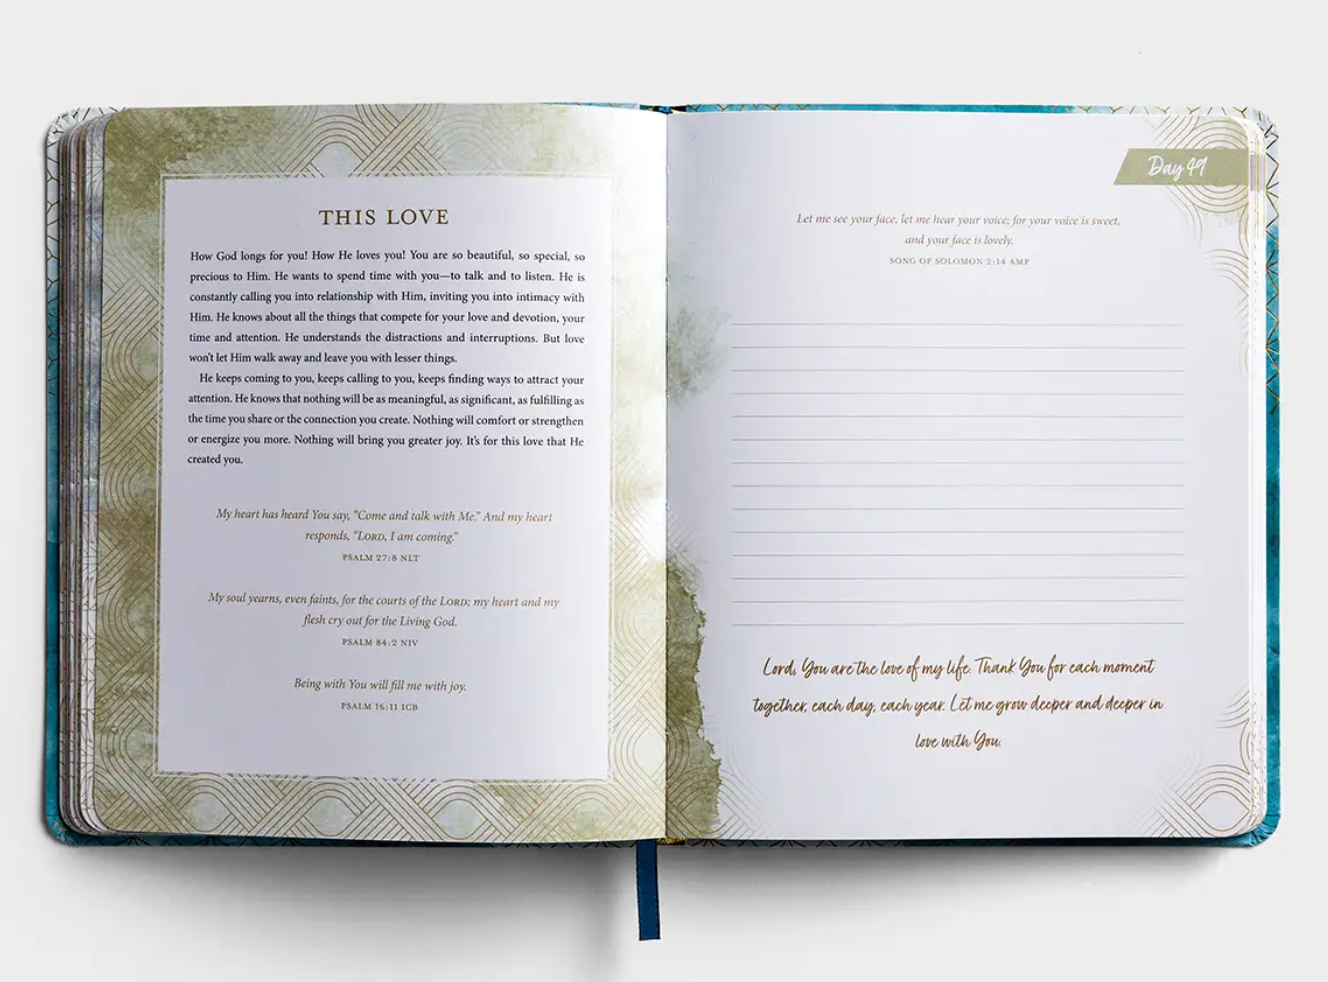 THIS LOVE
How God longs for you! How He loves you! You are so beautiful, so special, so
precious to Him. He wants to spend time with you—to talk and to listen. He is
constantly calling you into relationship with Him, inviting you into intimacy with
Him. He knows about all the things that compete for your love and devotion, your
time and attention. He understands the distractions and interruptions. But love
won't let Him walk away and leave you with lesser things.
He keeps coming to you, keeps calling to you, keeps finding ways to attract your
attention. He knows that nothing will be as meaningful, as significant, as fulfilling as
the time you share or the connection you create. Nothing will comfort or strengthen
or energize you more. Nothing will bring you greater joy. It's for this love that He
created you.
My heart has heard You say, "Come and talk with Me." And my heart
responds, "LORD, I am coming."
PSALM 27:8 NLT
My soul yearns, even faints, for the courts of the LORD; my heart and my
flesh cry out for the Living God.
PSALM 84:2 NIV
Being with You will fill me with joy.
PSALM 16:11 ICB
Day 49
Let me see your face, let me hear your voice; for your voice is sweet,
and your face is lovely.
SONG OF SOLOMON 2:14 AMP
Lord, You are the love of my life. Thank You for each moment
together, each day, each year. Let me grow deeper and deeper in
love with You.